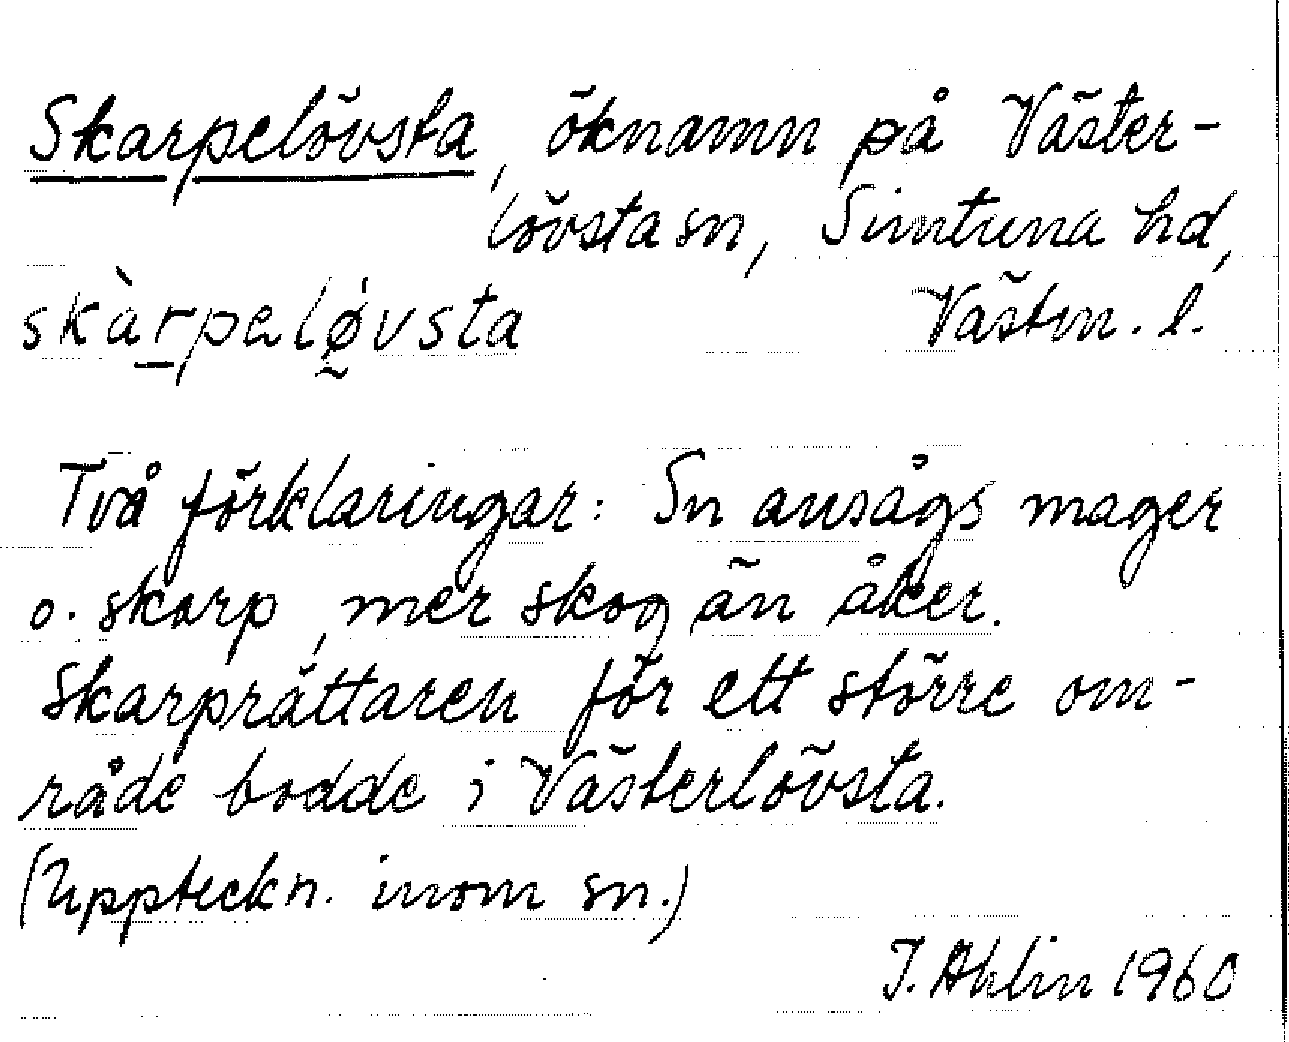 Skarpelövsta, öknamn på Väster-
lövsta sn, Simtuna hd,
skàrpeló̰vsta Västm. l.
Två förklaringar: Sn ansågs mager
o. skarp, mer skog än åker.
Skarprättaren för ett större om-
råde bodde i Västerlövsta.
(Uppteckn. inom sn.)
J. Ahlin 1960